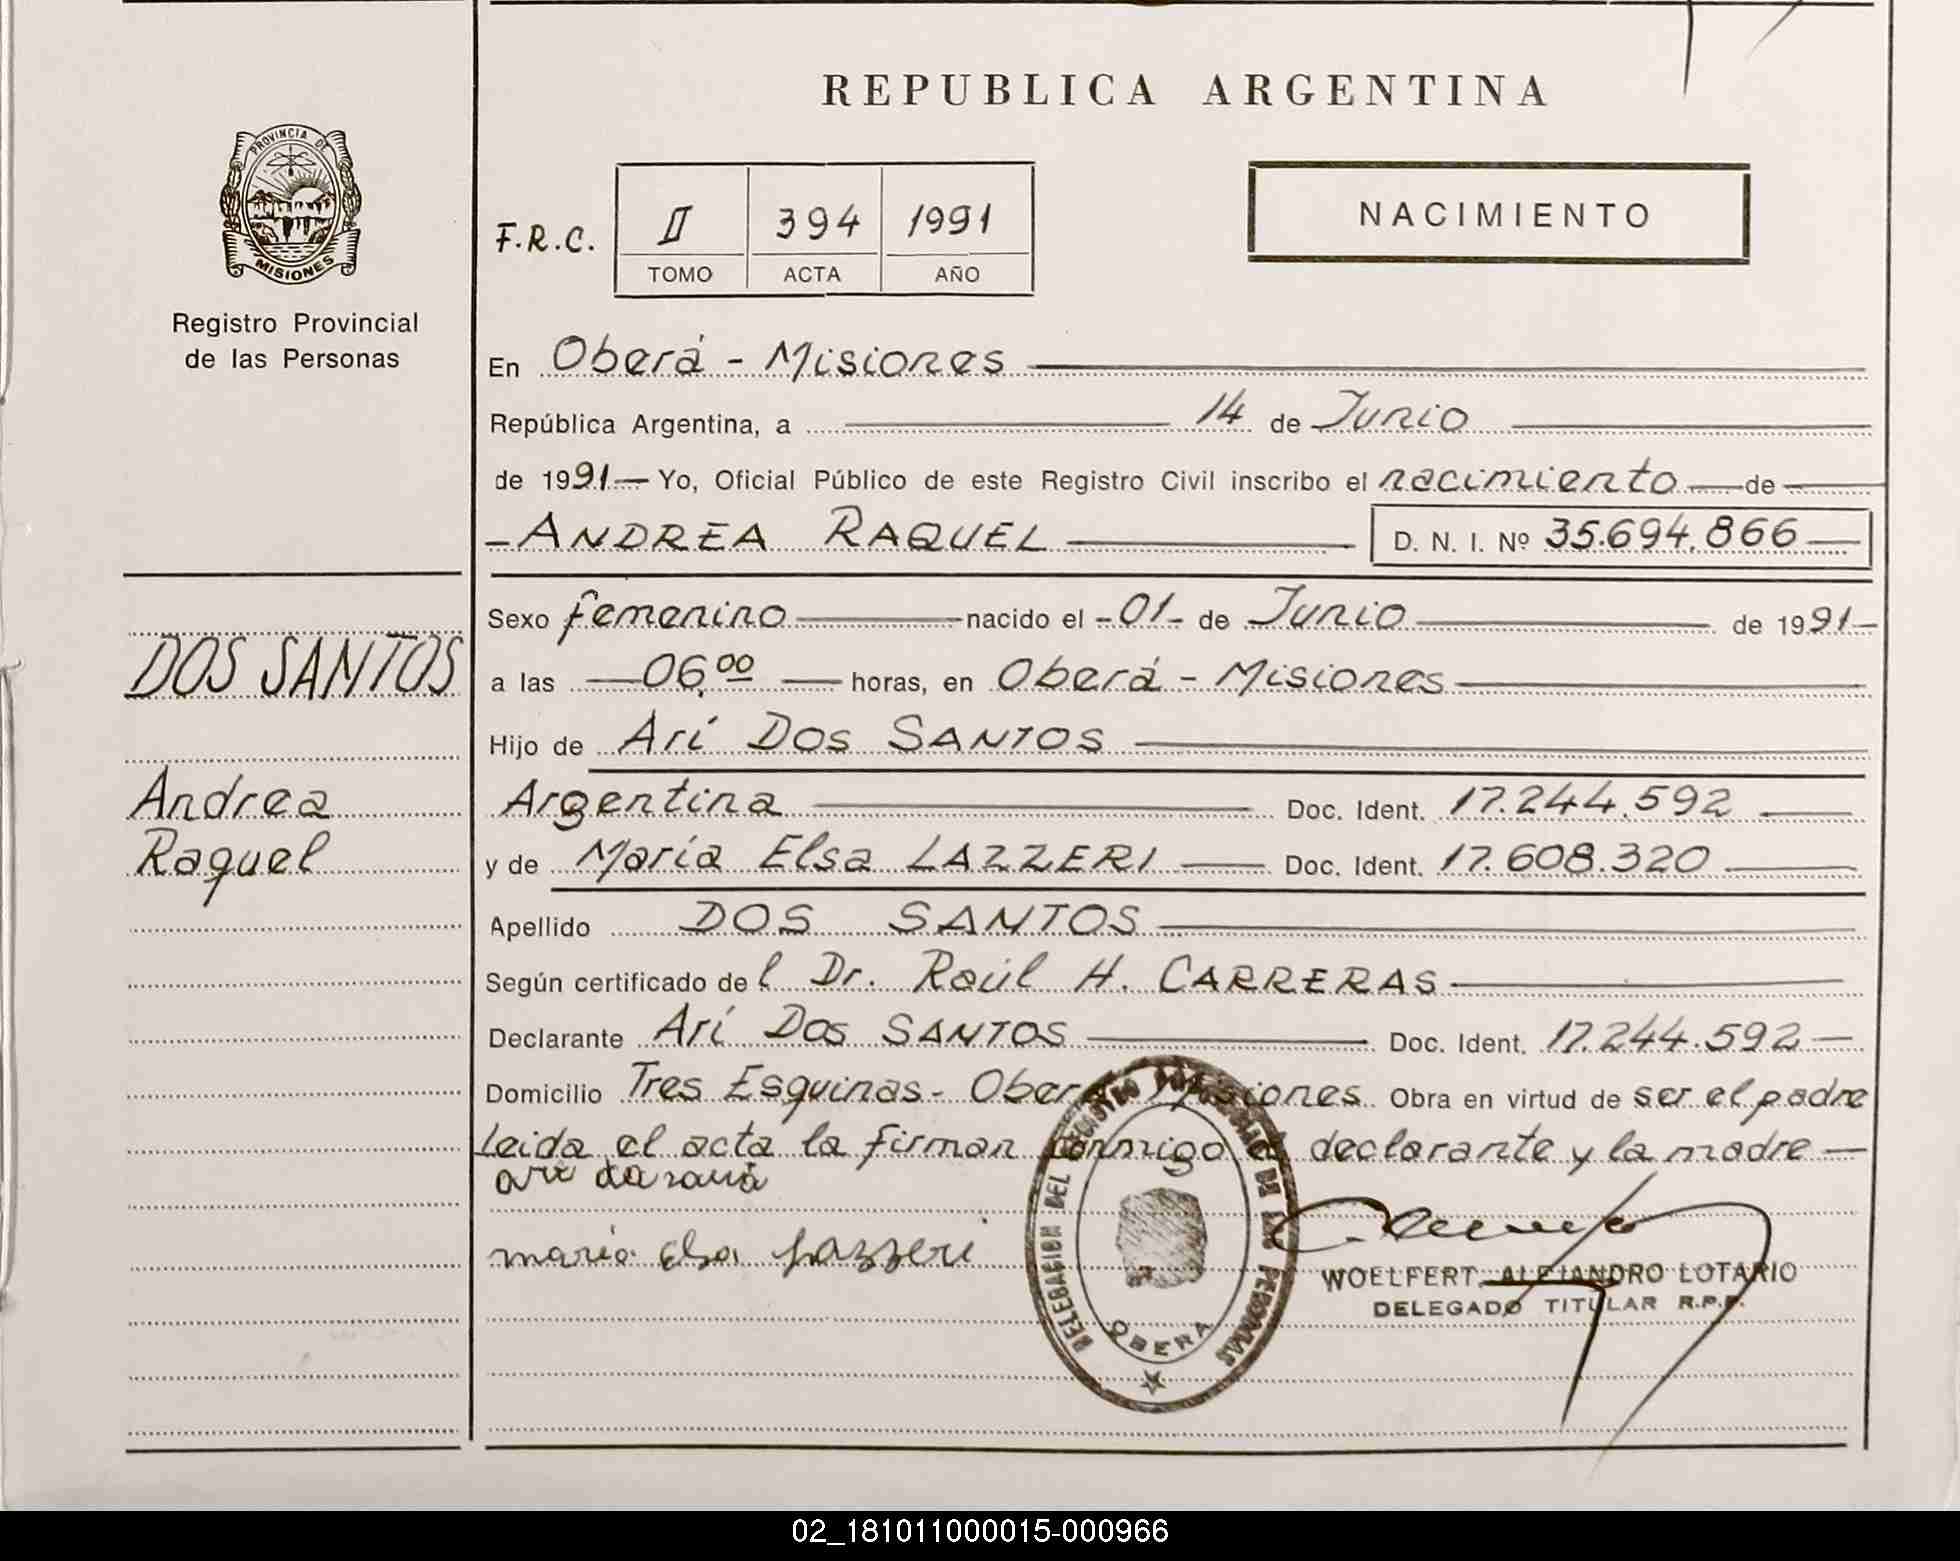 REPUBLICA ARGENTINA
PROVINCIA DE
MISIONES
Registro Provincial
de las Personas
F.R.C.
II 394 1991
TOMO ACTA AÑO
NACIMIENTO
En Oberá - Misiones
República Argentina, a 14 de Junio
de 1991 Yo, Oficial Público de este Registro Civil inscribo el nacimiento de
ANDREA RAQUEL D. N. I. Nº 35.694.866
DOS SANTOS
Andrea
Raquel
Sexo femenino nacido el -01- de Junio de 1991
a las 06,00 horas, en Oberá - Misiones
Hijo de Arí Dos SANTOS
Argentina Doc. Ident. 17.244.592
y de María Elsa LAZZERI Doc. Ident. 17.608.320
Apellido DOS SANTOS
Según certificado de l Dr. Raúl H. CARRERAS
Declarante Arí Dos SANTOS Doc. Ident. 17.244.592
Domicilio Tres Esquinas- Oberá Misiones Obra en virtud de ser el padre
Leida el acta la firman conmigo el declarante y la madre
maria elsa Lazzeri
DELEGACION DEL REGISTRO PROVINCIAL DE LAS PERSONAS
OBERA
WOELFERT ALEJANDRO LOTARIO
DELEGADO TITULAR R.P.P.
02_181011000015-000966